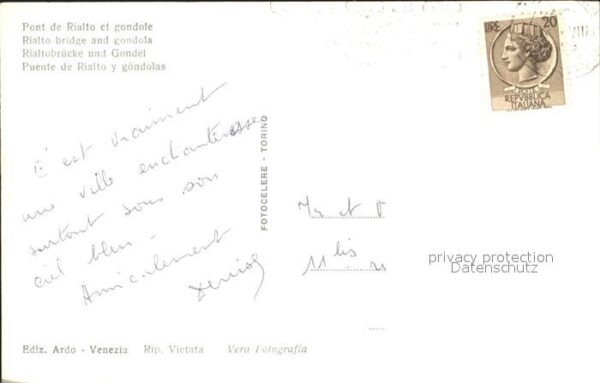 Pont de Rialto et gondole
Rialto bridge and gondola
Rialtobrücke und Gondel
Puente de Rialto y gòndolas
LIRE 20
POSTE
REPVBBLICA
ITALIANA
C'est vraiment
une ville enchanteresse
surtout sous son
ciel bleu -
Amicalement
Denise
FOTOCELERE - TORINO
et
11 bis
privacy protection
Datenschutz
Ediz. Ardo - Venezia Rip. Vietata Vera Fotografia